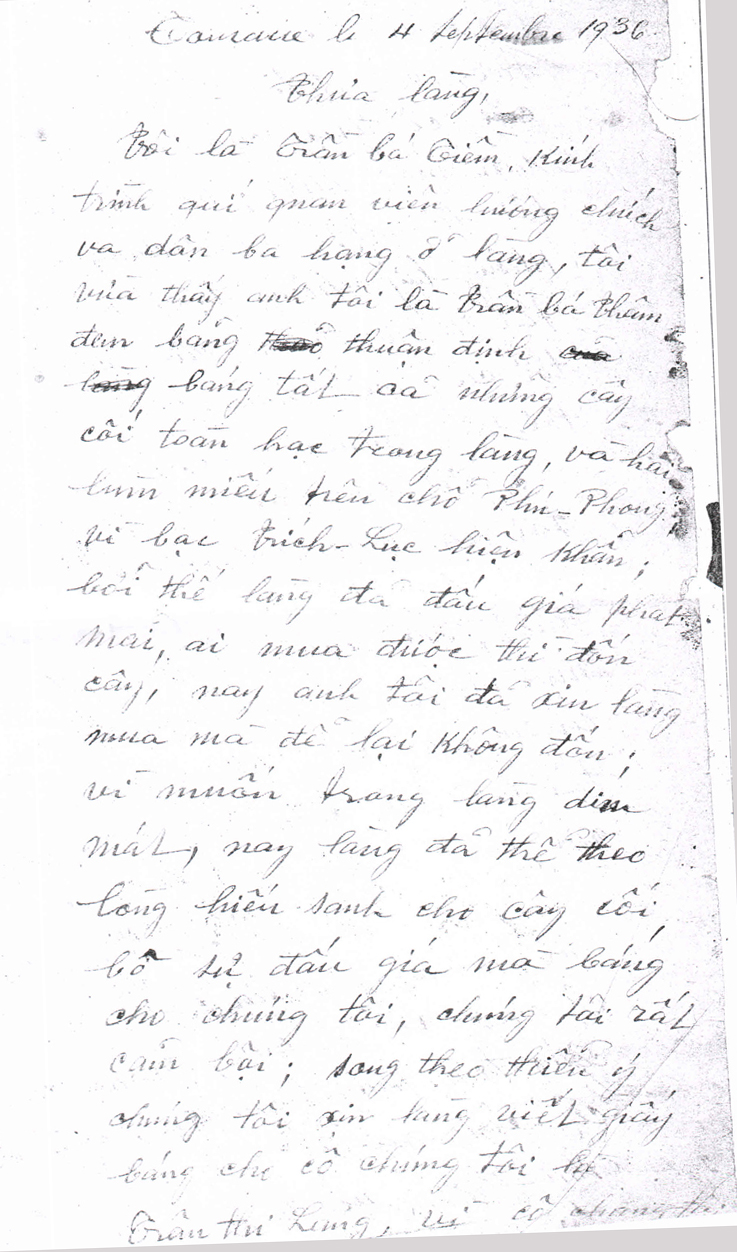 Tourane le 4 Septembre 1936
Thưa làng,
Tôi là Trần bá Tiềm, Kính
trình quí quan viên hương chức
và dân ba hạng ở làng, tôi
vừa thấy anh tôi là Trần bá Thâm
đem bằng thuận định
báng tất cả những cây
cối toàn hạc trong làng, và hai
lùm miếu trên chổ Phú-Phong
vì bạc Trích-Lục hiện Khẩn;
bởi thế làng đã đấu giá phát
mãi, ai mua được thì đốn
cây, nay anh tôi đã xin làng
mua mà để lại Không đốn;
vì muốn trong làng dim
mát, nay làng đã thể theo
lòng hiếu sanh cho cây cối,
bỏ sự đấu giá mà báng
cho chúng tôi, chúng tôi rất
cảm bội; song theo thiển ý
chúng tôi xin làng viết giấy
báng cho cô chúng tôi là
Trần thị Lung, vì cô chúng tôi